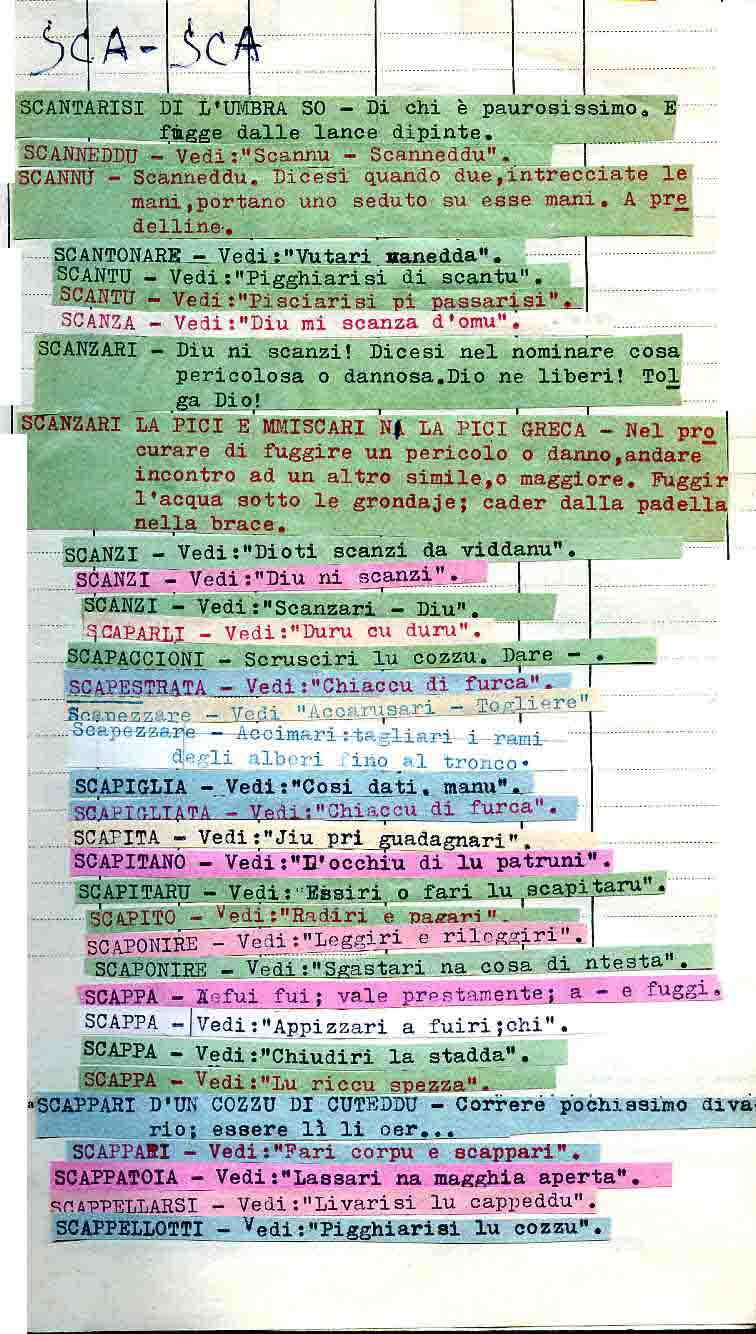 SCA - SCA
SCANTARISI DI L'UMBRA SO - Di chi è paurosissimo. E
fugge dalle lance dipinte.
SCANNEDDU - Vedi:"Scannu - Scanneddu".
SCANNU - Scanneddu. Dicesi quando due,intrecciate le
mani,portano uno seduto su esse mani. A pre
delline.
SCANTONARE - Vedi:"Vutari manedda".
SCANTU - Vedi:"Pigghiarisi di scantu".
SCANTU - Vedi:"Pisciarisi pi passarisi".
SCANZA - Vedi:"Diu mi scanza d'omu".
SCANZARI - Diu ni scanzi! Dicesi nel nominare cosa
pericolosa o dannosa.Dio ne liberi! Tol
ga Dio!
SCANZARI LA PICI E MMISCARI N LA PICI GRECA - Nel pro
curare di fuggire un pericolo o danno,andare
incontro ad un altro simile,o maggiore. Fuggir
l'acqua sotto le grondaje; cader dalla padella
nella brace.
SCANZI - Vedi:"Dioti scanzi da viddanu".
SCANZI - Vedi:"Diu ni scanzi".
SCANZI - Vedi:"Scanzari - Diu".
SCAPARLI - Vedi:"Duru cu duru".
SCAPACCIONI - Scrusciri lu cozzu. Dare - .
SCAPESTRATA - Vedi:"Chiaccu di furca".
Scapezzare - Vedi "Accarusari - Togliere"
Scapezzare - Accimari:tagliari i rami
degli alberi fino al tronco.
SCAPIGLIA - Vedi:"Cosi dati. manu".
SCAPIGLIATA - Vedi:"Chiaccu di furca".
SCAPITA - Vedi:"Jiu pri guadagnari".
SCAPITANO - Vedi:"L'occhiu di lu patruni".
SCAPITARU - Vedi:"Essiri o fari lu scapitaru".
SCAPITO - Vedi:"Radiri e pagari".
SCAPONIRE - Vedi:"Leggiri e rileggiri".
SCAPONIRE - Vedi:"Sgastari na cosa di ntesta".
SCAPPA - fui fui; vale prestamente; a - e fuggi.
SCAPPA - Vedi:"Appizzari a fuiri;chi".
SCAPPA - Vedi:"Chiudiri la stadda".
SCAPPA - Vedi:"Lu riccu spezza".
SCAPPARI D'UN COZZU DI CUTEDDU - Correre pochissimo diva
rio; essere lì li per...
SCAPPARI - Vedi:"Fari corpu e scappari".
SCAPPATOIA - Vedi:"Lassari na magghia aperta".
SCAPPELLARSI - Vedi:"Livarisi lu cappeddu".
SCAPPELLOTTI - Vedi:"Pigghiarisi lu cozzu".